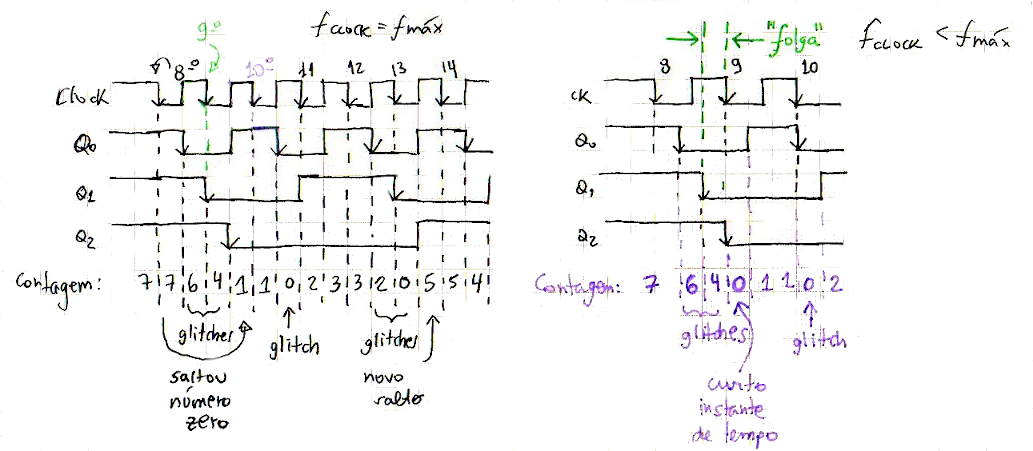 9º
fclock = fmáx
8º 10º 11 12 13 14
Clock
Q0
Q1
Q2
Contagem: 7 7 6 4 1 1 0 2 3 3 2 0 5 5 4
glitches
glitch
glitches
saltou
número
zero
novo
salto
"folga"
fclock < fmáx
8 9 10
CK
Q0
Q1
Q2
Contagem: 7 6 4 0 1 1 0 2
glitches
glitch
curto
instante
de tempo